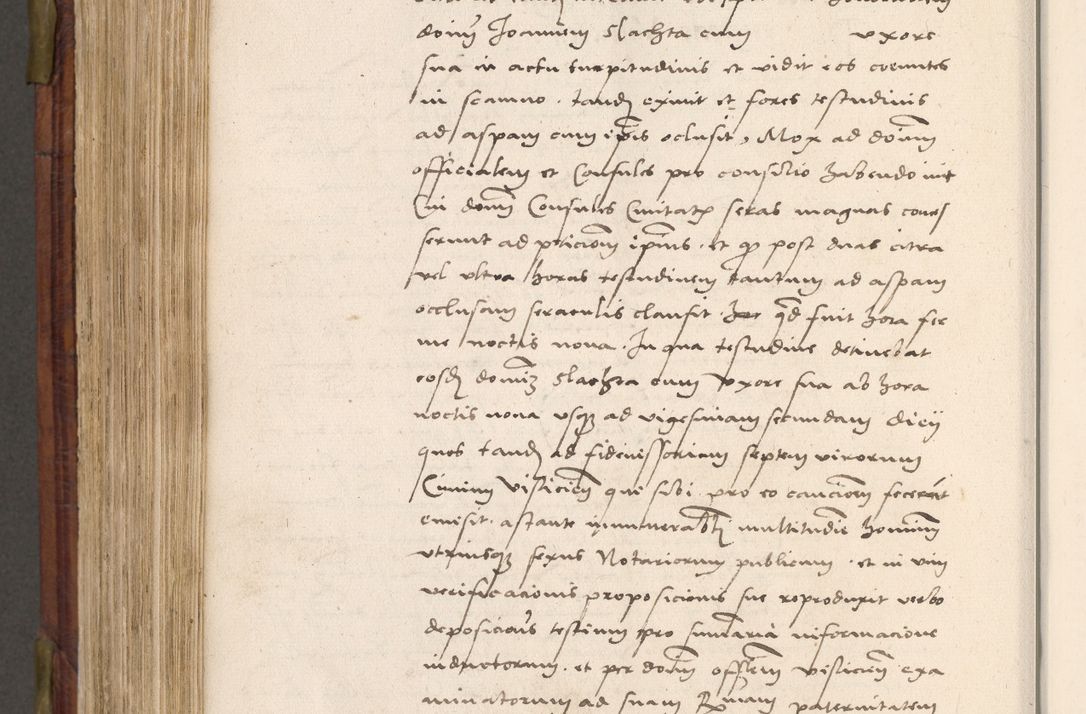 domi͂ Joannem Slachta cum uxore
sua in actu turpitudinis et vidit eos coeuntes
in scamno . tandē exivit et fores testudinis
ad aspam cum ip̄is oclusit, Mox ad domū
officialem et Consules pro consilio habendo ivit
Cui domī Consules Civitatꝭ seras magnas conces
serunt ad peticionē ip̄ius . et qꝫ post duas citra
vel ultra horas testudinem tantum ad aspam
occlusam seraculis clausit . qd̄ fuit hora fer
me noctis nona . In qua testudine detinebat
eosdē domin Slachta cum Uxore sua ab hora
noctis nona usqꝫ ad vigesimam secundam diei
quos tandē ad fideiussoriam septem virorum
Civium Vislicien̄ qui sibi pro eo caucionē fecerūt
emisit . astante innumerabili multitudīe hominū
utriusqꝫ sexus Notariorum publicum . et in vim
verificacionis proposicionis sue reproduxit verbo
deposicioēs testium pro summaria informacione
inductorum . et per domī offlēm vislicien̄ exa
minatorum ad suam Rmam paternitatem